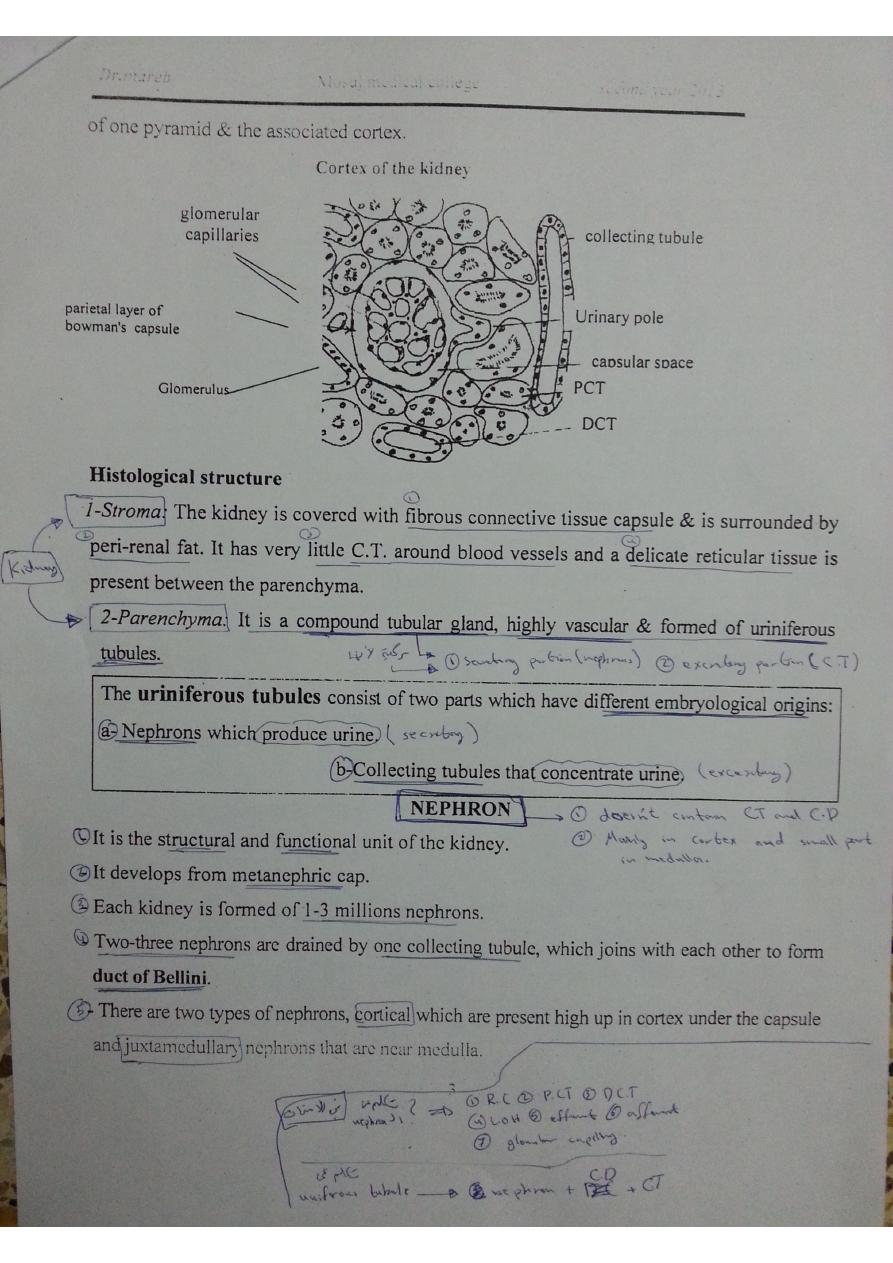 Dr.mareb Mosul medical college second year 2013
of one pyramid & the associated cortex.
Cortex of the kidney
glomerular
capillaries
collecting tubule
parietal layer of
bowman's capsule
Urinary pole
capsular space
Glomerulus
PCT
DCT
Histological structure
1-Stroma: The kidney is covered with fibrous connective tissue capsule & is surrounded by
peri-renal fat. It has very little C.T. around blood vessels and a delicate reticular tissue is
Kidney
present between the parenchyma.
2-Parenchyma: It is a compound tubular gland, highly vascular & formed of uriniferous
tubules.
① portion (nephrons) ② portion (C T)
The uriniferous tubules consist of two parts which have different embryological origins:
a- Nephrons which produce urine, (secretory)
b-Collecting tubules that concentrate urine, (
NEPHRON
① doesn't contain CT and C.D
② Mainly in cortex and small part
in medulla.
① It is the structural and functional unit of the kidney.
② It develops from metanephric cap.
③ Each kidney is formed of 1-3 millions nephrons.
④ Two-three nephrons are drained by one collecting tubule, which joins with each other to form
duct of Bellini.
⑤- There are two types of nephrons, cortical which are present high up in cortex under the capsule
and juxtamedullary nephrons that are near medulla.
① R.C ② P.CT ③ D.C.T
④ LOH ⑤ efferent ⑥ afferent
⑦ capillary
tubule → nephron + CD + CT